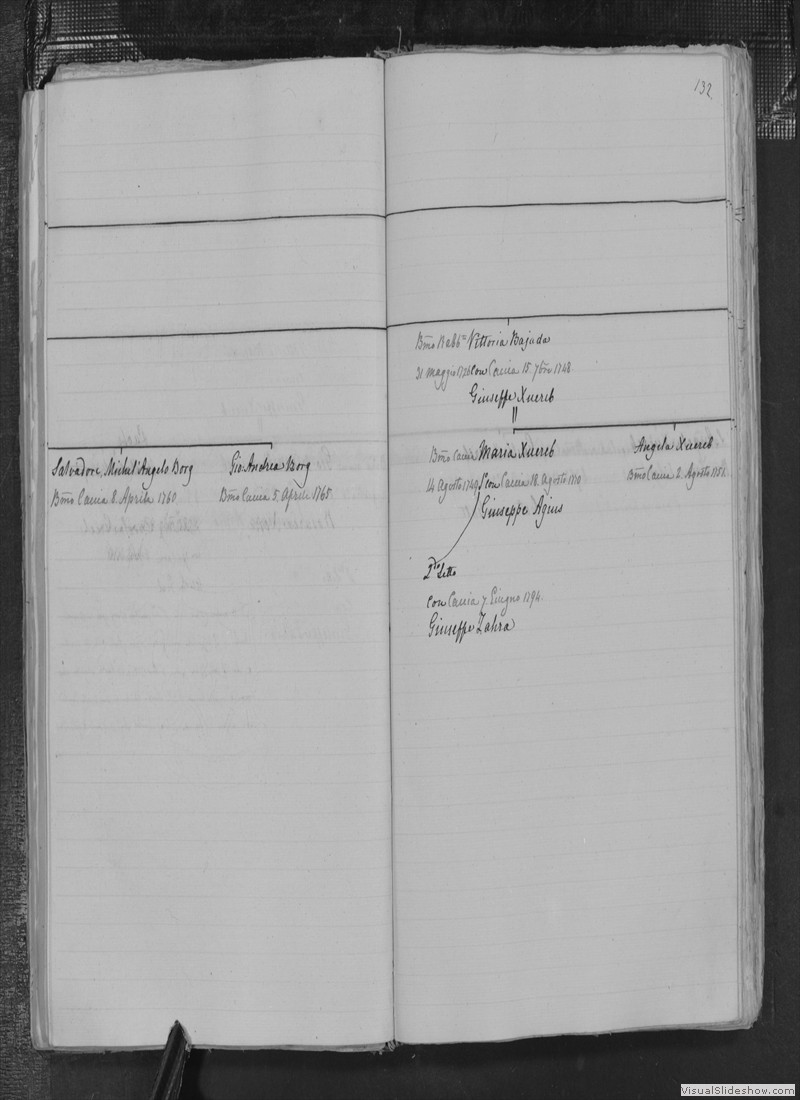 132
Salvadore, Michel'Angelo Borg
Bmo Cauia 8. Aprile 1760
Gio Andrea Borg
Bmo Cauia 5. Aprile 1765
Bmo Rabbto Vittoria Bajada
31 maggio 1726 con Cauia 15. 7bre 1748
Giuseppe Xuereb
Bmo Cauia Maria Xuereb
14 Agosto 1749 con Cauia 18. Agosto 1770
Giuseppe Agius
2do Letto
con Cauia 7 Giugno 1794.
Giuseppe Zahra
Angela Xuereb
Bmo Cauia 2. Agosto 1751
VisualSlideshow.com